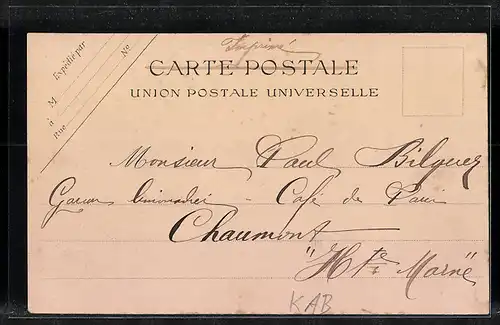 Expédié par
M
à
Rue
No
Imprimé
CARTE POSTALE
UNION POSTALE UNIVERSELLE
Monsieur Paul Bilguez
Café de Paris
Chaumont
"Hte Marne"
KAB